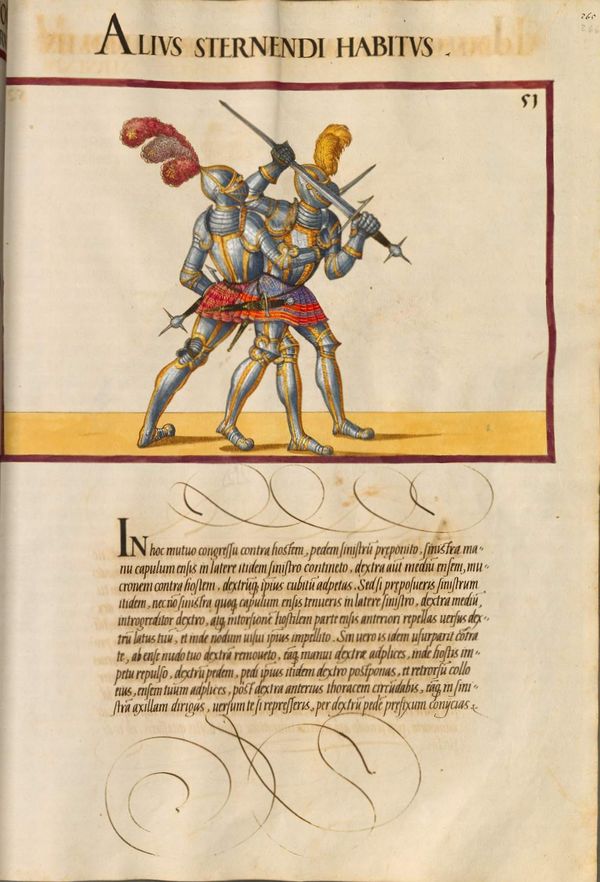 265
266
ALIVS STERNENDI HABITVS.
51
In hoc mutuo congressu contra hostem, pedem sinistrū preponito, sinistra ma-
nu capulum ensis in latere itidem sinistro contineto, dextra aūt mediū ensem, mu-
cronem contra hostem, dextrūq; ipius cubitū adpetas. Sed si preposueris sinistrum
itidem, necnō sinistra quoq; capulum ensis tenueris in latere sinistro, dextra mediū,
introgreditor dextro, atq; intorsione hostilem parte ensis anteriori repellas versus dex-
trū latus tuū, et inde nodum uisui ipius impellito. Sin uero is idem usurparit cōtra
te, ab ense nudo tuo dextrā remoueto, eāq; manui dextrae adplices, inde hostis im-
petu repulso, dextrū pedem, pedi ipius itidem dextro postponas, et retrorsū collo
eius, ensem tuum adplices, post dextra anterius thoracem circūdabis, eāq; in sini-
strā axillam dirigas, uersum te si represseris, per dextrū pedē prefixum conycias.